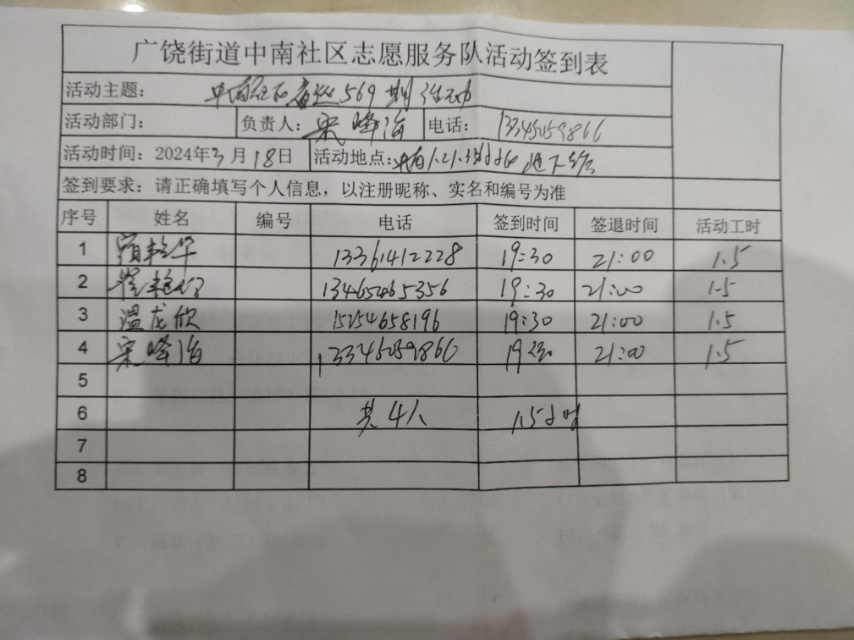 广饶街道中南社区志愿服务队活动签到表
活动主题: 569期活动
活动部门: 负责人: 宋峰治 电话: 13345059866
活动时间: 2024年3月18日 活动地点:
签到要求: 请正确填写个人信息，以注册昵称、实名和编号为准
序号 姓名 编号 电话 签到时间 签退时间 活动工时
1 13361412228 19:30 21:00 1.5
2 13465465356 19:30 21:00 1.5
3 温龙欣 15254658196 19:30 21:00 1.5
4 宋峰治 13345059866 19:30 21:00 1.5
5
6 共4人 1.5小时
7
8